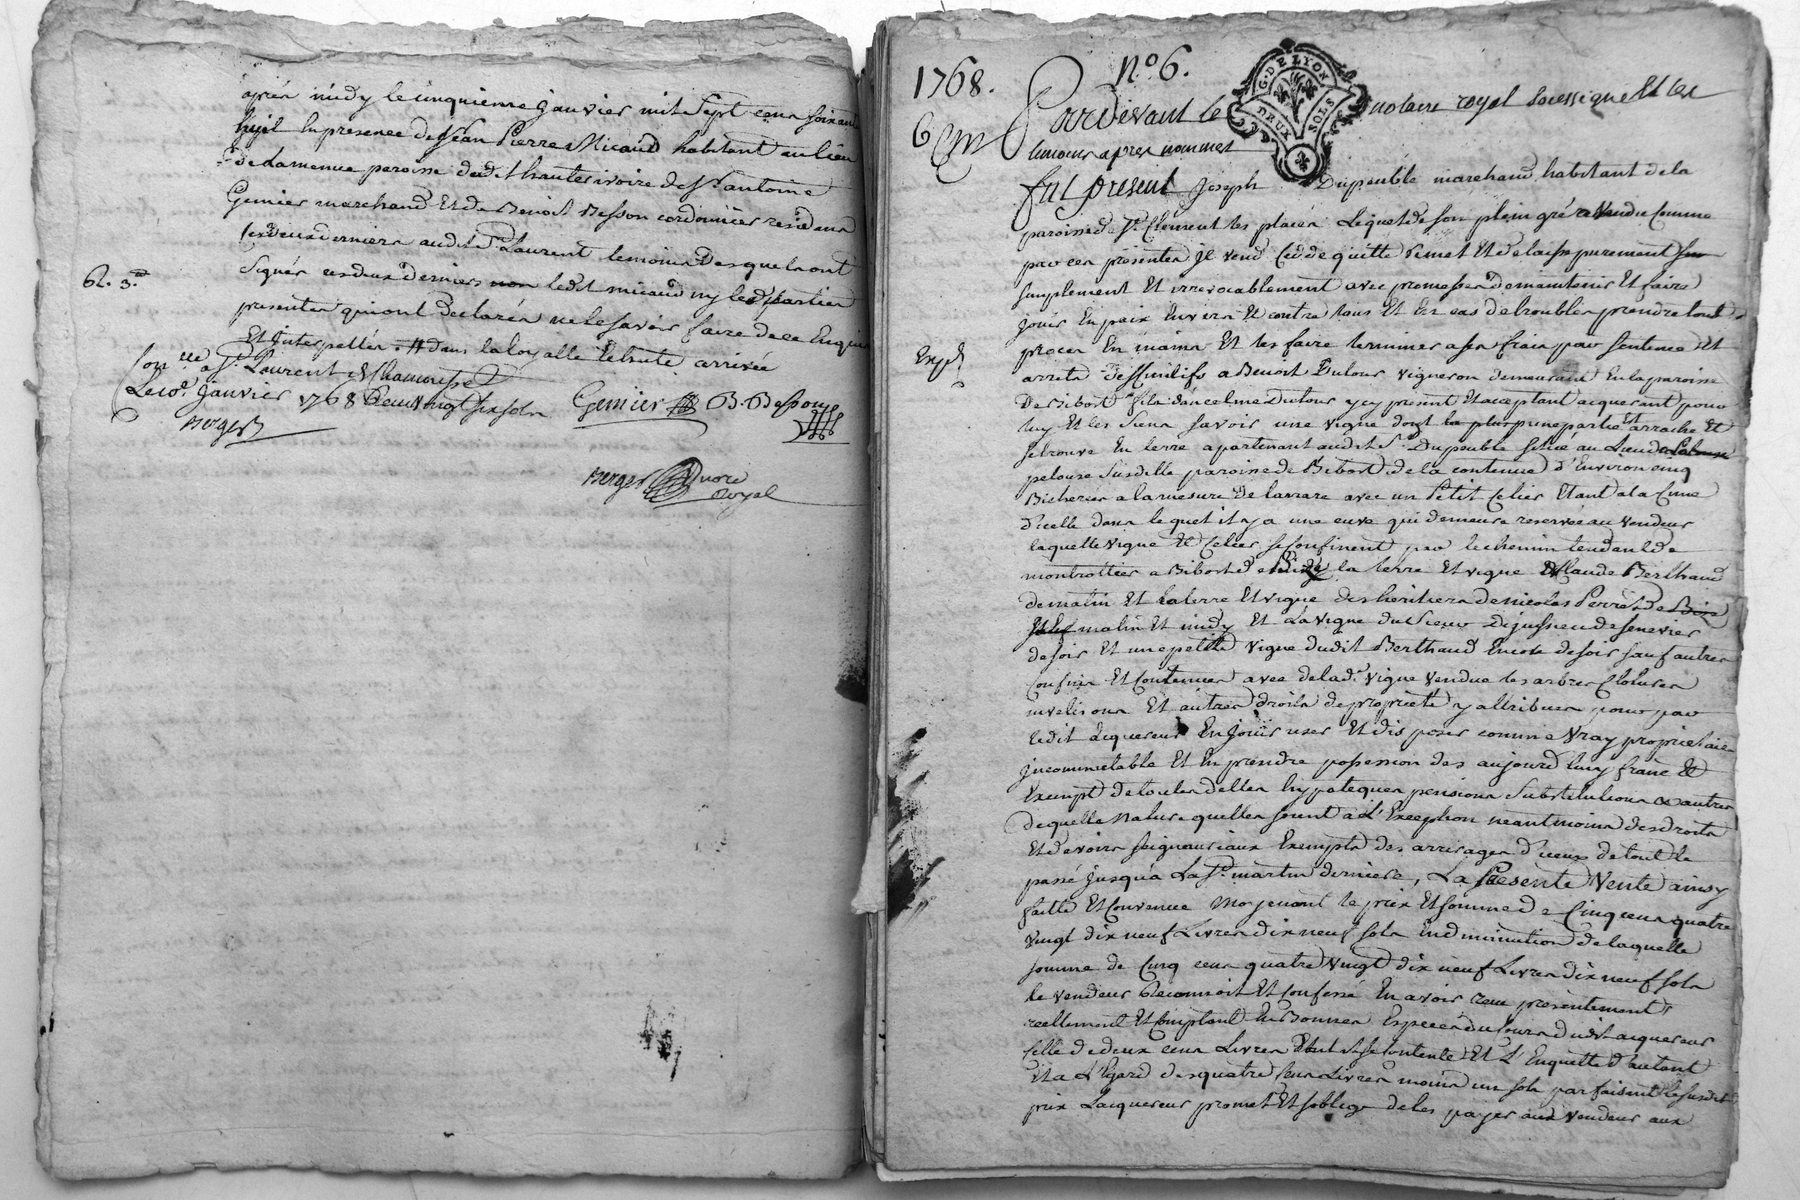 après midy le cinquieme janvier mil sept cens soixante
huit en presence de Jean Pierre Micaud habitant au lieu
de Lamenue paroisse dudit hauterivoire de Sr antoine
Genier marchand Et de Benoit Besson cordonnier residans
ces deux derniers audit St Laurent temoins Lesquels ont
signés ces deux derniers non ledt micaud ny les parties
presentes qui ont declarés ne le savoir faire de ce Enquis
Et Interpellés dans la loyalle Minute arrivée
62. 3.
Conlle a St Laurent de Chamousset
Le 10e janvier 1768 Recu vingt six sols
Berger
Genier B. Besson
Berger nore
Royal
1768. N° 6.
G. DE LYON
DEUX SOLS
6
Pardevant le notaire royal soussigné Et les
temoins apres nommés
fut present Joseph Dupeuble marchand habitant de la
paroisse de St Clement les places Lequel de son plein gré a vendu comme
par ces presentes il vend cedde quitte remet Et delaisse purement
simplement Et irrevocablement avec promesse de maintenir Et faire
jouir En paix Envers Et contre tous Et En cas de troubles prendre tout
proces En mains Et les faire terminer a ses frais par sentence Et
Exp
arrets deffinitifs a Benoit Dutour vigneron demeurant En la paroisse
de Bibost fils d'ancelme Dutour y cy present Et acceptant acquereur pour
luy Et les siens savoir une vigne dont la plus pune partie Est arrachée Et
se trouve En terre apartenant audit Sr Dupeuble située au Lieu de
pelouse susditte paroisse de Bibost de la contenue d'Environ cinq
Bicherées a la mesure de Lavare avec un Petit Celier Etant a la Cime
d'icelle dans lequel il y a une cuve qui demeure reservée au vendeur
laquelle vigne Et Celier se confinent par le chemin tendant de
montrottier a Bibost de la terre Et vigne de Claude Berthaud
de matin Et la terre Et vigne des heritiers de nicolas Perret de
matin Et midy Et La vigne du Sieur Dejussieu de Senevier
de soir Et une petitte vigne dudit Berthaud Encore de soir sauf autres
confins Et Contenues avec de lade vigne vendue les arbres Clotures
invetisons Et autres droits de proprieté y attribués pour par
ledit acquereur En jouir user Et disposer comme vray proprietaire
jncommutable Et En prendre possession des aujourd'huy franc Et
Exempt de toutes dettes hypoteques pensions Substitutions Et autres
de quelle Nature quelles soient a L'Exception neantmoins des droits
Et devoirs seigneuriaux Exempts des arrerages d'iceux de tout le
passé jusqua La St martin derniere, La Presente Vente ainsy
faitte Et Convenue moyenant le prix Et somme de Cinq cens quatre
vingt dix neuf Livres dix neuf sols En diminution de laquelle
somme de Cinq cens quatre vingt dix neuf Livres dix neuf sols
le vendeur Reconnoit Et Confesse En avoir recu presentement
reellement Et Comptant En Bonnes Especes du Cours dudit acquereur
Celle de deux cens Livres dont il se Contente Et L'Enquitte d'autant
Et a L'Egard des quatre Cens Livres moins un sols parfaisant le susdit
prix Lacquereur promet Et soblige de les payer aud vendeur aux